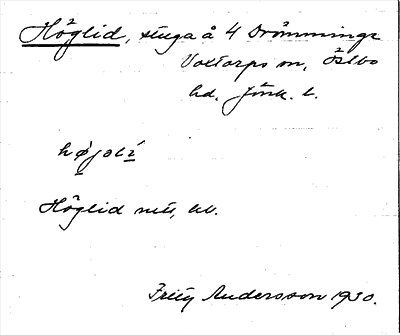 Höglid, stuga å 4 Drömminge
Voxtorps sn, Östbo
hd, Jönk. l.
Höglid
Fritz Andersson 1930.